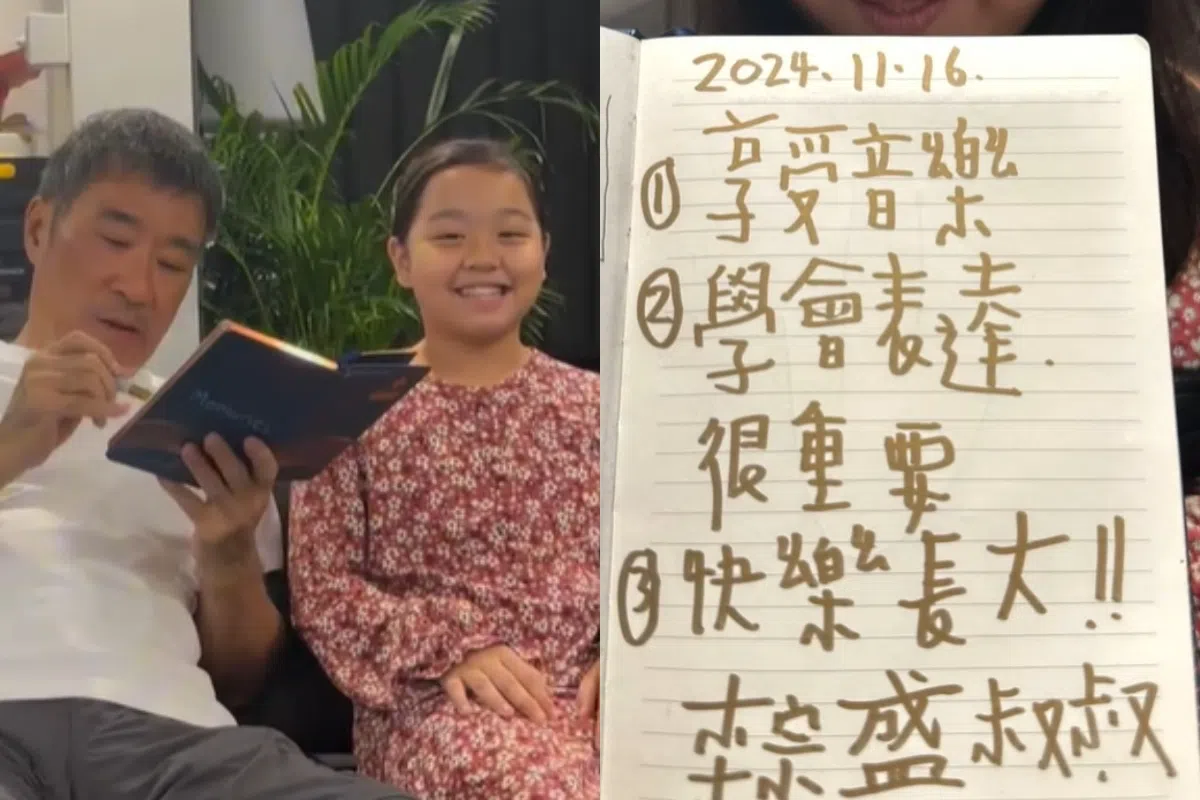 Memories
2024.11.16.
① 享受音樂
② 學會表達.
很重要
③ 快樂長大!!
宗盛叔叔